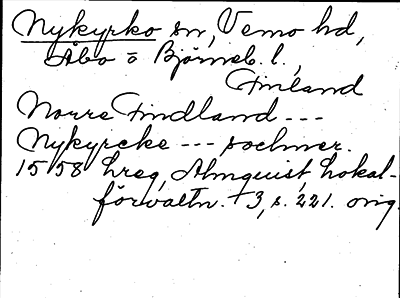 Nykyrko sn, Vemo hd,
Åbo o Björneb. l.,
Finland
Norre Findland ---
Nykyrcke --- sochner.
1558 hreg, Almquist, Lokal-
förvaltn. + 3, s. 221. orig.